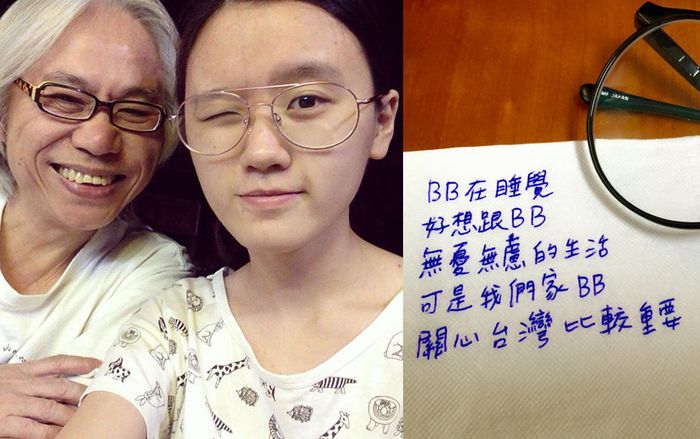 MF JAPAN
BB在睡覺
好想跟BB
無憂無慮的生活
可是我們家BB
關心台灣比較重要